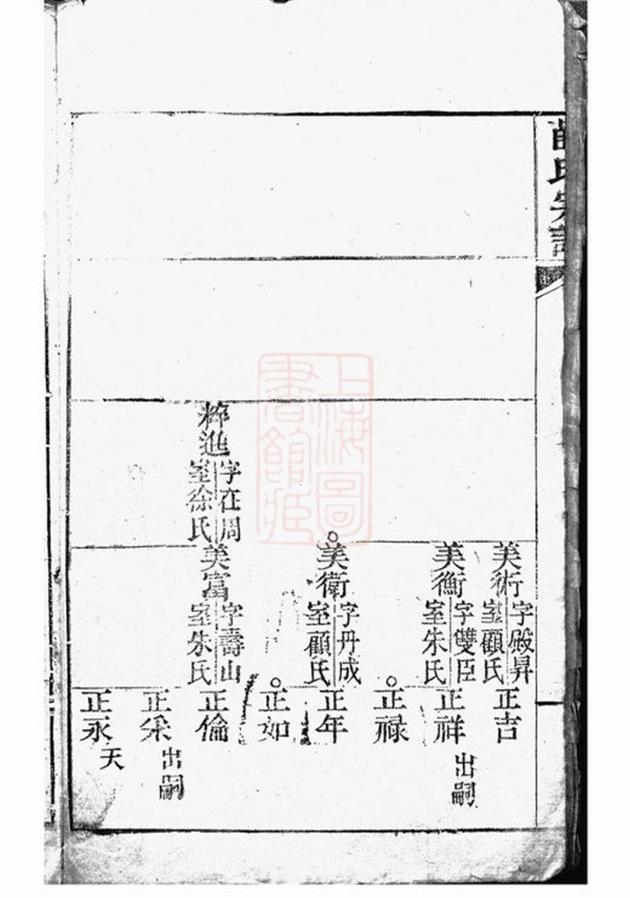 氏宗譜
美術
字殿昇
室顧氏
正吉
美衡
字雙臣
室朱氏
正祥
出嗣
○正祿
○美衛
字丹成
室顧氏
正年
○正如
粹進
字在周
室徐氏
美富
字壽山
室朱氏
正倫
正采
出嗣
正永
夭
上海圖
書館藏